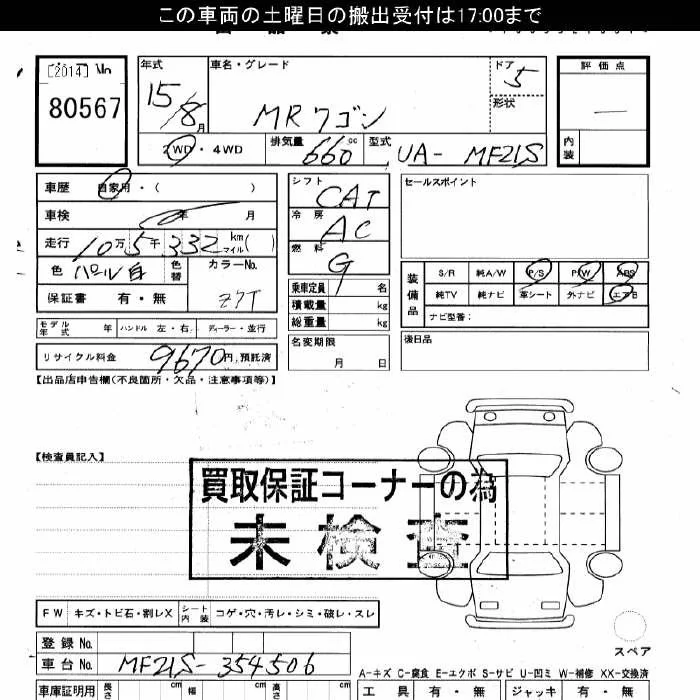 この車両の土曜日の搬出受付は17:00まで
[2014] No
80567
年式
15/8月
車名・グレード
MRワゴン
ドア
5
形状
2WD・4WD
排気量
660 cc
型式
UA- MF21S
評価点
―
内装
車歴 自家用・( )
車検 年 月
走行 10万5千332 km マイル( )
色 パール白
色替
カラーNo.
Z7T
保証書 有・無
モデル年式 年 ハンドル 左・右 ディーラー・並行
リサイクル料金 9670円 預託済
シフト
CAT
冷房
AC
燃料
G
乗車定員 名
積載量 kg
総重量 kg
名変期限
月 日
セールスポイント
装備品
S/R 純A/W P/S P/W ABS
純TV 純ナビ 革シート 外ナビ エアB
ナビ型番:
後日品
【出品店申告欄(不良箇所・欠品・注意事項等)】
【検査員記入】
買取保証コーナーの為
未検査
FW キズ・トビ石・割レX シート内装 コゲ・穴・汚レ・シミ・破レ・スレ
スペア
登録No.
車台No. MF21S-354506
A-キズ C-腐食 E-エクボ S-サビ U-凹ミ W-補修 XX-交換済
車庫証明用 長さ cm 幅 cm 高さ cm
工具 有・無 ジャッキ 有・無